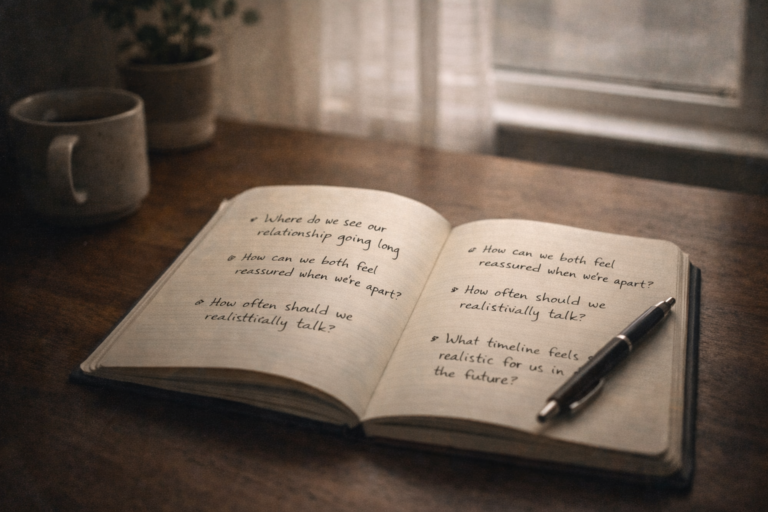 Where do we see our
relationship going long
How can we both feel
reassured when we're apart?
How often should we
realisttically talk?
How can we both feel
reassured when we're apart?
How often should we
realistivally talk?
What timeline feels
realistic for us in
the future?